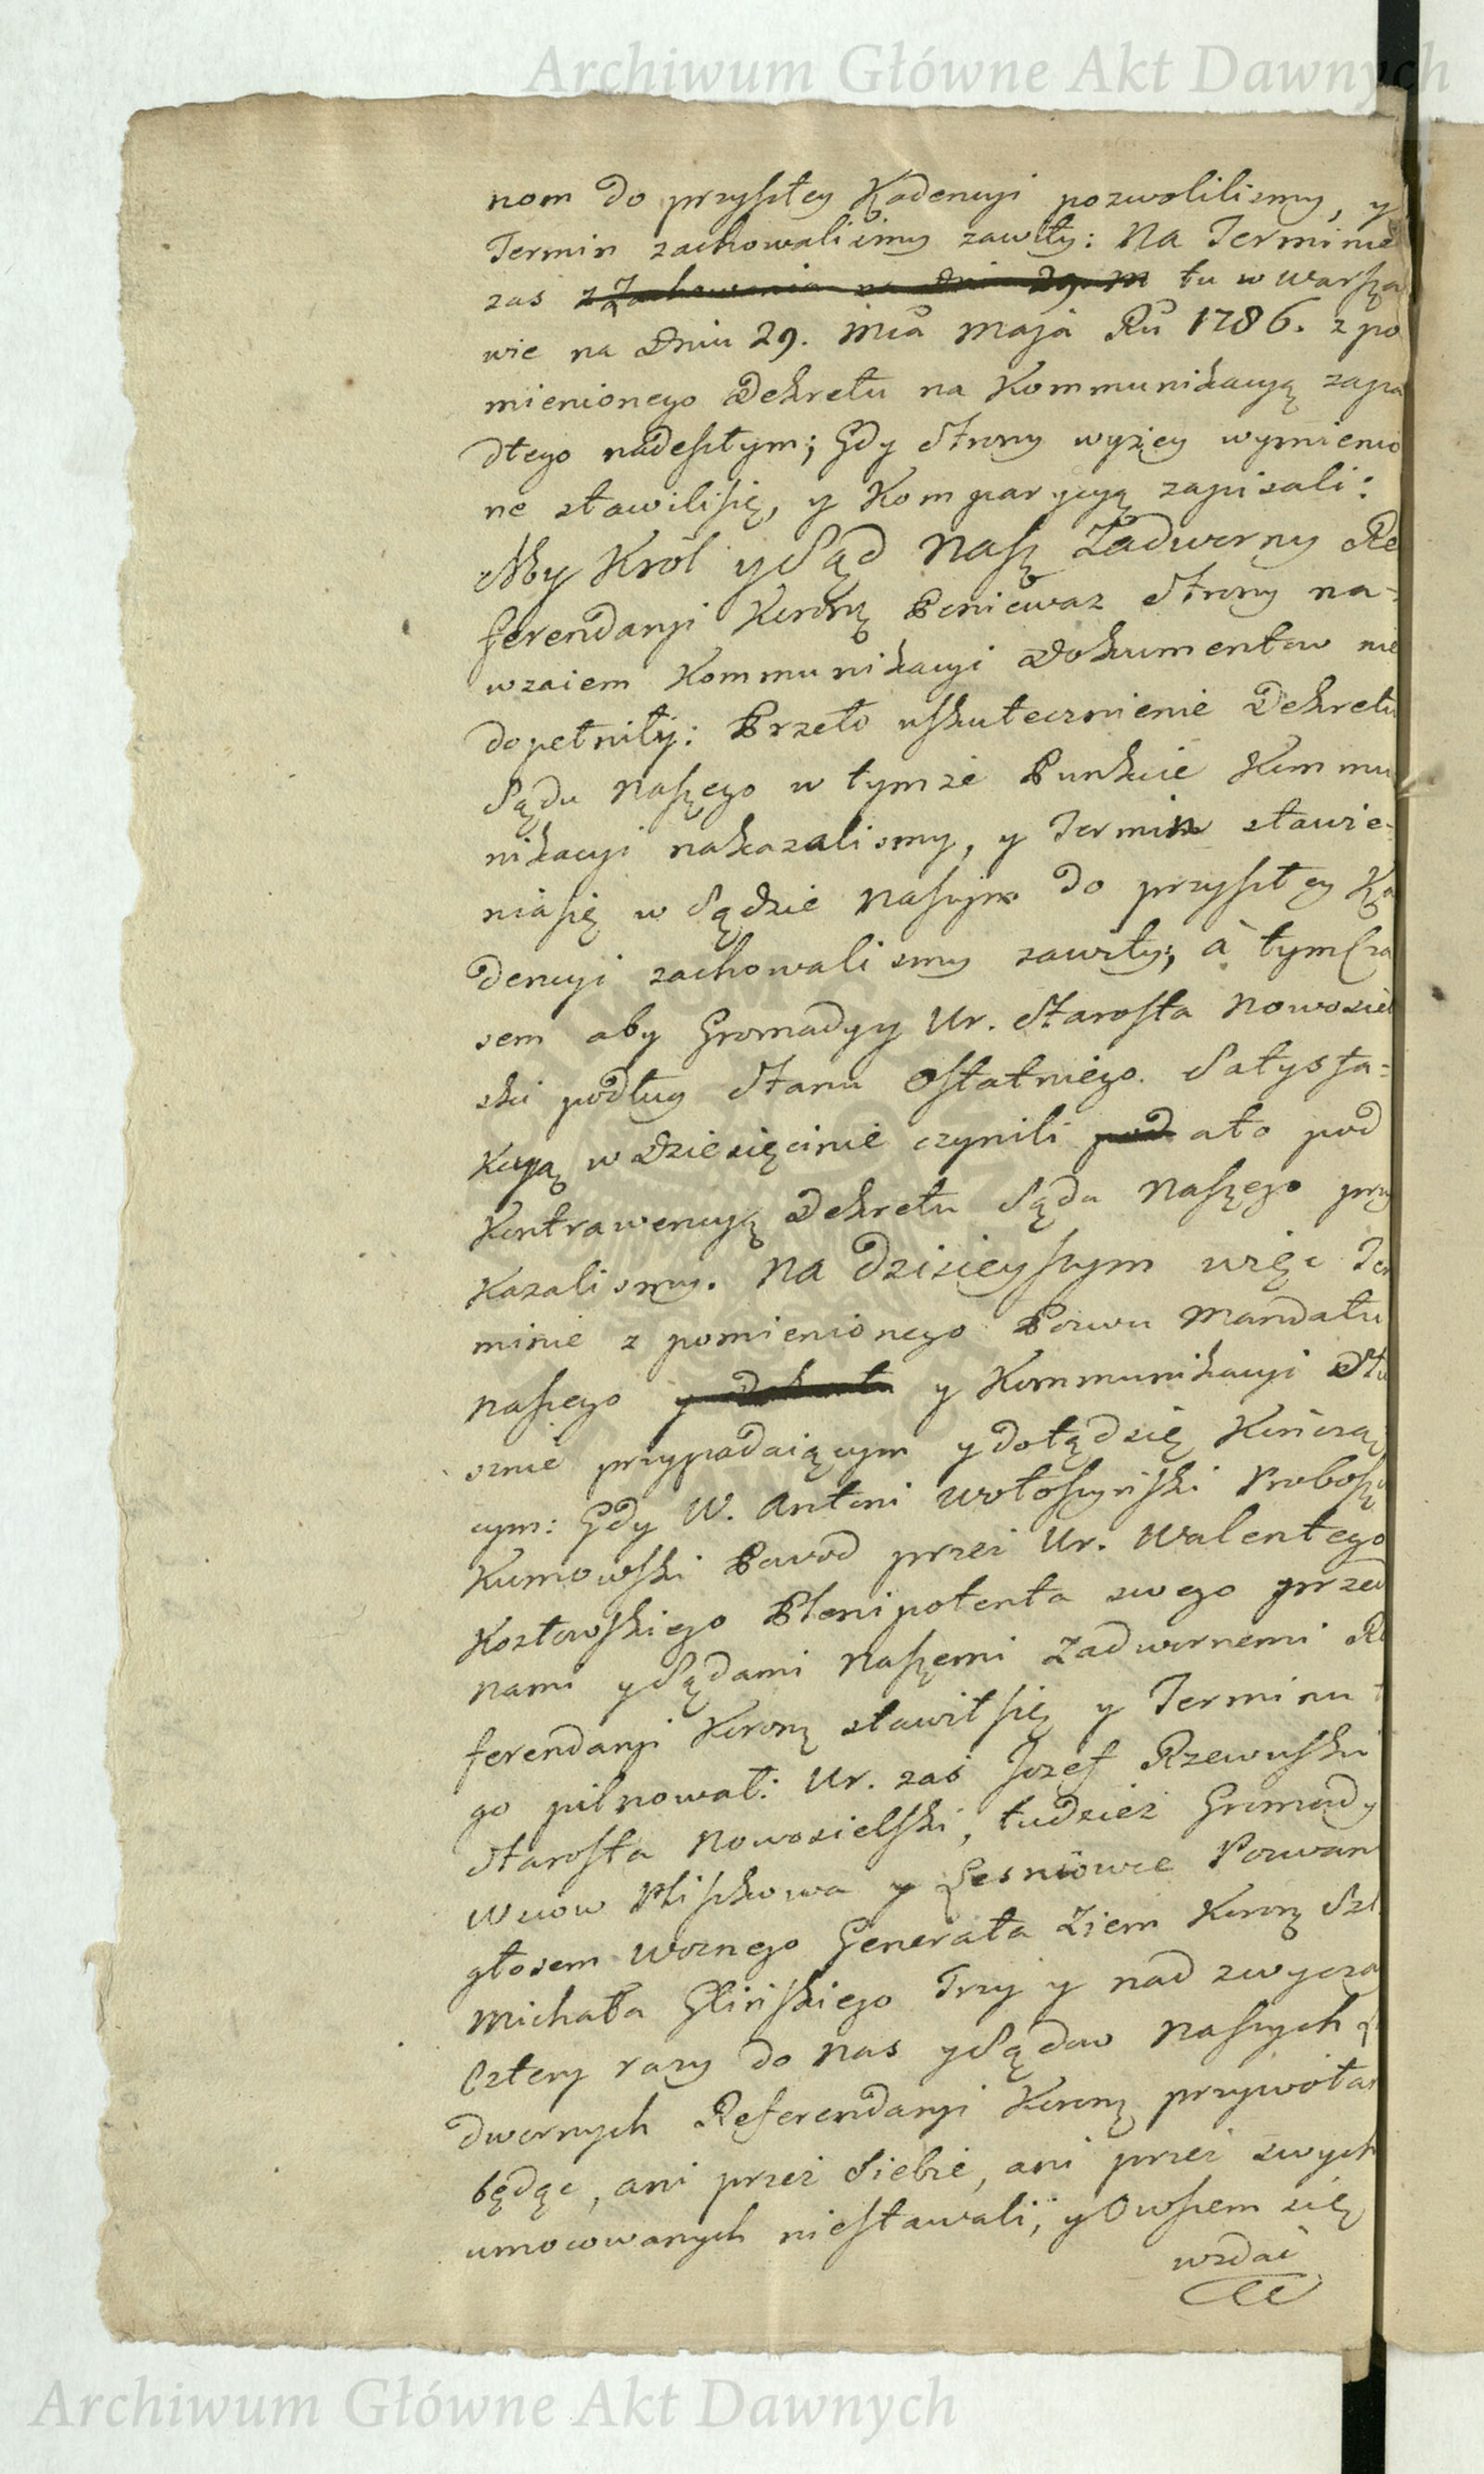 Archiwum Główne Akt Dawnych
nom do przyszłey Kadencyi pozwolilismy, y
Termin zachowalismy zawiły: Na Terminie
zas z Zachowania na dniu 29. M tu w Warsza
wie na Dniu 29. Mca Maja Ru 1786. z po
mienionego Dekretu na Kommunikacyą zapa
dłego nadeszłym; Gdy Strony wyżey wymienio
ne stawilisię, y Komparycyą zapisali:
My Król y Sąd Nasz Zadworny Re
ferendaryi Koronę Ponieważ Strony na-
wzaiem Kommunikacyi Dokumentow nie
dopełniły: Przeto uskutecznienie Dekretu
Sądu Naszego w tymże Punkcie Kommu
nikacyi nakazalismy, y Termin stawie-
niasię w Sądzie Naszym do przyszłey Ka
dencyi zachowalismy zawiły; à tymcza
sem aby Gromady y Ur. Starosta Nowosiel
ski podług Stanu Ostatniego Satysfa=
kcyą w Dziesięcinie czynili pod ato pod
Kontrawencyą Dekretu Sądu Naszego przy
kazalismy. Na Dzisieyszym więc Ter
minie z pomienionego Pozwu Mandatu
Naszego y Dekretu y Kommunikacyi Słu
sznie przypadaiącym y dotądsię Kończą
cym: Gdy W. Antoni Wołoszyński Probosz
Kumowski Powod przez Ur. Walentego
Kozłowskiego Plenipotenta swego przed
nami y Sądami Naszemi Zadwornemi Re
ferendaryi Koronę stawiłsię y Terminu
go pilnował: Ur. zaś Jozef Rzewuski
Starosta Nowosielski, tudzież Gromady
Wsiow Pliszkowa y Lesniowie Pozwan
głosem Woznego Generała Ziem Koronę Szl
Michała Glińskiego Trzy y nad zwycza
Cztery razy do nas y Sądow Naszych
dwornych Referendaryi Koronę przywołan
będąc, ani przez Siebie, ani przez swych
umocowanych niestawali, y Owszem się
wzdać
Archiwum Główne Akt Dawnych